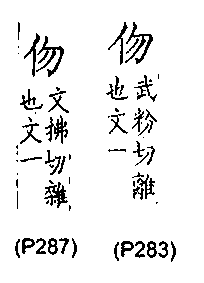 伆
文拂切雜
也文一
(P287)
伆
武粉切離
也文一
(P283)